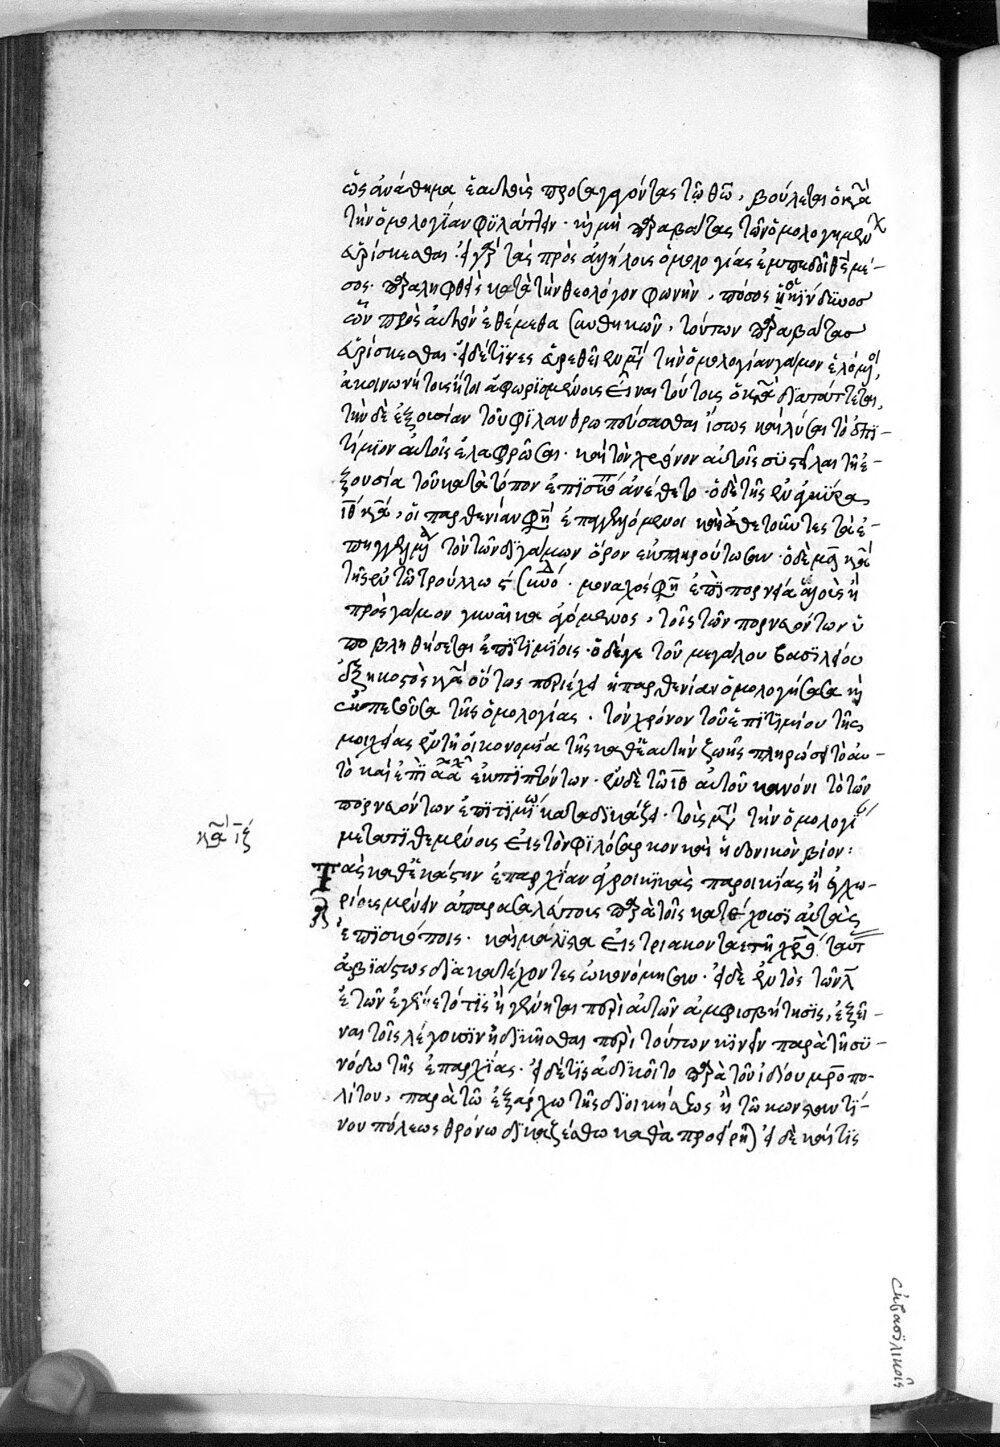 ὡς ἀνάθημα ἑαυτοὺς προσαγαγόντας τῶ θῶ, βούλεται ὁ κανὼν
τὴν ὁμολογίαν φυλάττειν· καὶ μὴ παραβάτας τῶν ὁμολογημένων
εὑρίσκεσθαι· εἰ γὰρ τὰς πρὸς ἀλλήλους ὁμολογίας ἐμπεδοῖ θς μέ-
σος παραληφθεὶς κατὰ τὴν θεολόγον φωνὴν, πόσος ὁ κίνδυνος
ὧν πρὸς αὐτὸν ἐθέμεθα συνθηκῶν, τούτων παραβάτας
εὑρίσκεσθαι· εἰ δέ τινες εὑρεθεῖεν μετὰ τὴν ὁμολογίαν γάμον ἑλόμενοι,
ἀκοινωνήτους ἤτοι ἀφωρισμένους εἶναι τούτους ὁ κανὼν διατάττεται,
τὴν δὲ ἐξουσίαν τοῦ φιλανθρωπεύσασθαι ἴσως καὶ λῦσαι τὸ ἐπι-
τίμιον αὐτοῖς ἐλαφρῶσαι· καὶ τὸν χρόνον αὐτοῖς συστεῖλαι τῆ ἐ-
ξουσία τοῦ κατὰ τόπον ἐπισκόπου ἀνέθετο· ὁ δὲ τῆς ἐν ἀγκύρα
ιθ κανὼν, οἱ παρθενίαν φησὶ ἐπαγγελλόμενοι καὶ ἀθετοῦντες τὸ ἐ-
πάγγελμα τὸν τῶν διγάμων ὅρον ἐκπληρούτωσαν· ὁ δὲ μδ κανὼν
τῆς ἐν τῶ τρούλλω ς συνόδου· μοναχός φησι ἐπὶ πορνεία ἁλοὺς ἢ
πρὸς γάμον γυναῖκα ἀγόμενος, τοῖς τῶν πορνευόντων ὑ
ποβληθήσεται ἐπιτιμίοις· ὁ δέ γε τοῦ μεγάλου βασιλείου
ἑξηκοστὸς κανὼν οὕτως περιέχει ἡ παρθενίαν ὁμολογήσασα καὶ
ἐκπεσοῦσα τῆς ὁμολογίας· τὸν χρόνον τοῦ ἐπιτιμίου τῆς
μοιχείας ἐν τῆ οἰκονομία τῆς καθ' ἑαυτὴν ζωῆς πληρώσει τὸ αὐ-
τὸ καὶ ἐπὶ ἐκπιπτόντων· ἐν δὲ τῶ ιθ αὐτοῦ κανόνι τὸ τῶν
πορνευόντων ἐπιτίμιον καταδικάζει· τοὺς μετὰ τὴν ὁμολογίαν
μετατιθεμένους εἰς τὸν φιλόσαρκον καὶ ἡδονικὸν βίον:
κανὼν ιζ
Τὰς καθ' ἑκάστην ἐπαρχίαν ἀγροικικὰς παροικίας ἢ ἐγχω-
ρίους μένειν ἀπαρασαλεύτους παρὰ τοῖς κατέχουσι αὐτὰς
ἐπισκόποις· καὶ μάλιστα εἰ τριακονταετῆ χρόνον ταύτας
ἀβιάστως διακατέχοντες ὠκονόμησαν· εἰ δὲ ἐντὸς τῶν λ
ἐτῶν ἐγένετό τις ἢ γένηται περὶ αὐτῶν ἀμφισβήτησις, ἐξεῖ-
ναι τοῖς λέγουσιν ἠδικῆσθαι περὶ τούτων κινεῖν παρὰ τῆ συ-
νόδω τῆς ἐπαρχίας· εἰ δέ τις ἀδικοῖτο παρὰ τοῦ ἰδίου μητροπο-
λίτου, παρὰ τῶ ἐξάρχω τῆς διοικήσεως ἢ τῶ κωνσταντι-
νουπόλεως θρόνω δικαζέσθω καθὰ προείρηται) εἰ δὲ καί τις
ἐκ βασιλικῆς